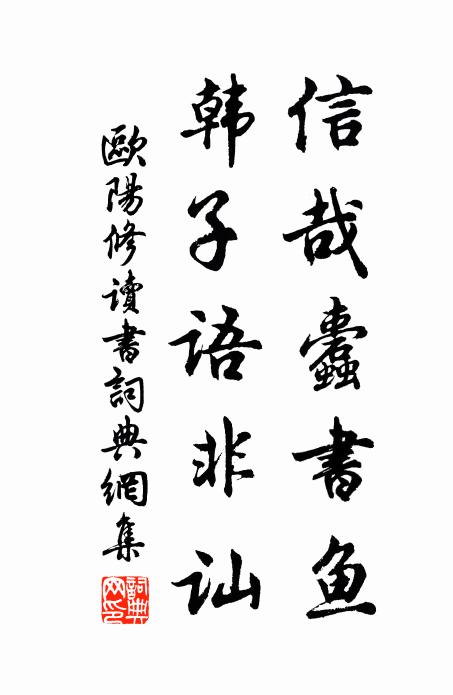 信哉蠹書鱼
韩子语非讪
歐陽修讀書詞典網集
詞典网印